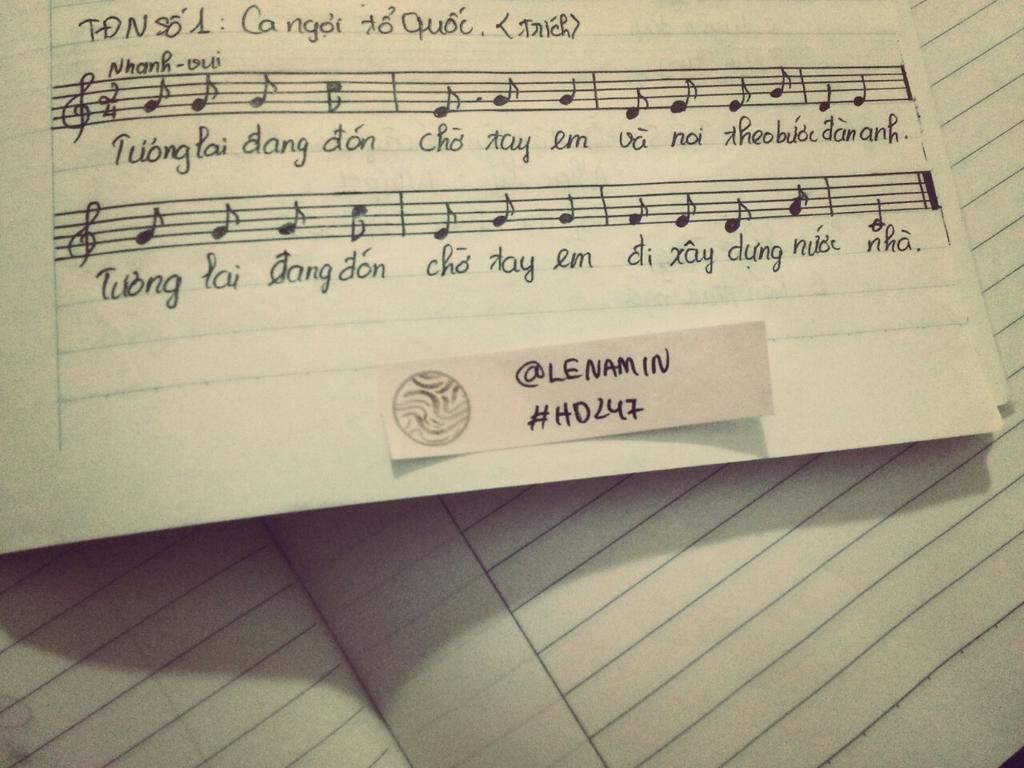 TĐN Số 1: Ca ngợi tổ Quốc. <Trích>
Nhanh-vui
2/4
Tương lai đang đón chờ tay em và noi theo bước đàn anh.
Tương lai đang đón chờ tay em đi xây dựng nước nhà.
@LENAMIN
#HD247